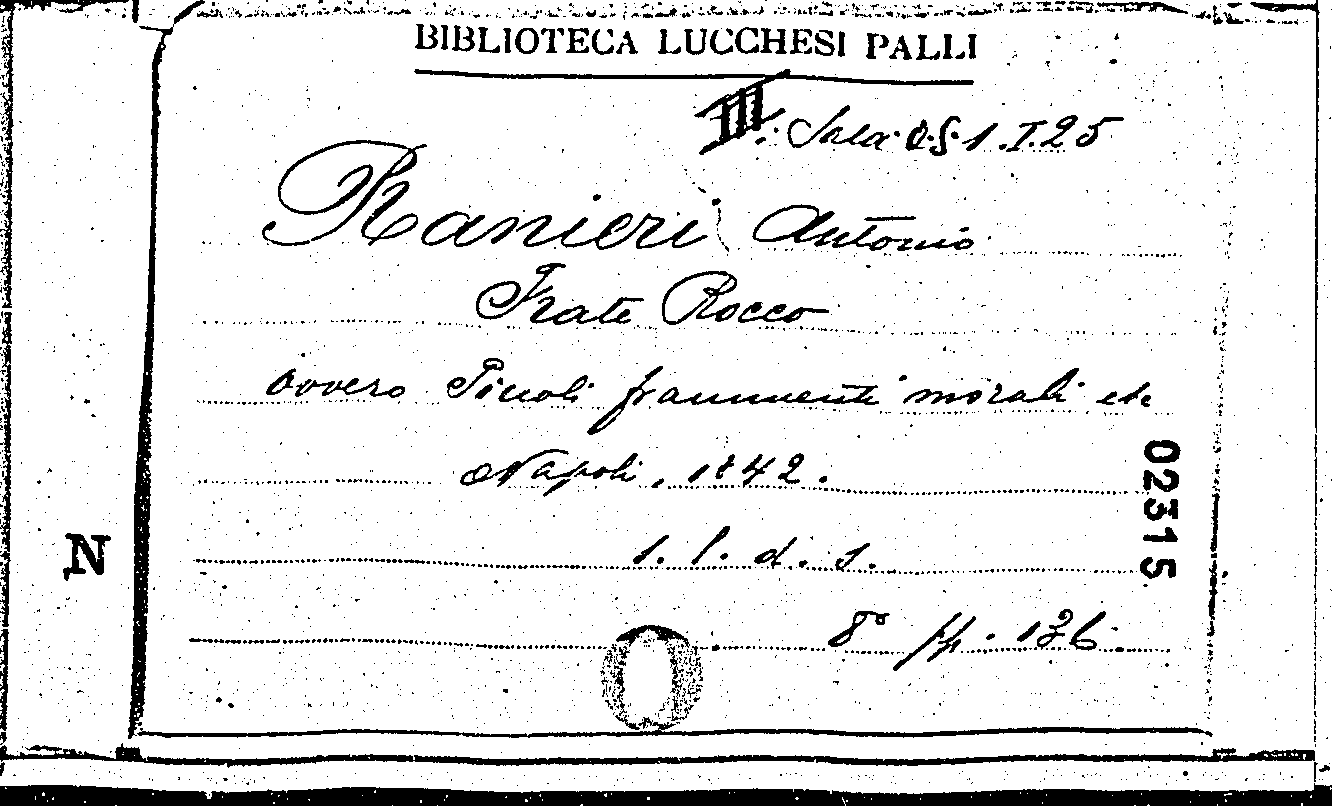 BIBLIOTECA LUCCHESI PALLI
III. Sala. 1.I.25
Ranieri Antonio
Frate Rocco
ovvero Piccoli frammenti morali etc
Napoli, 1842.
s. l. d. s.
8° pp. 136.
02315
N